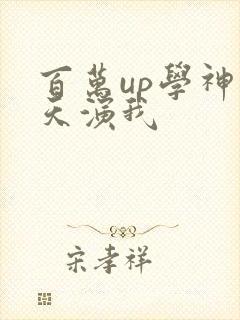 百萬up學神
天演我
宋孝祥